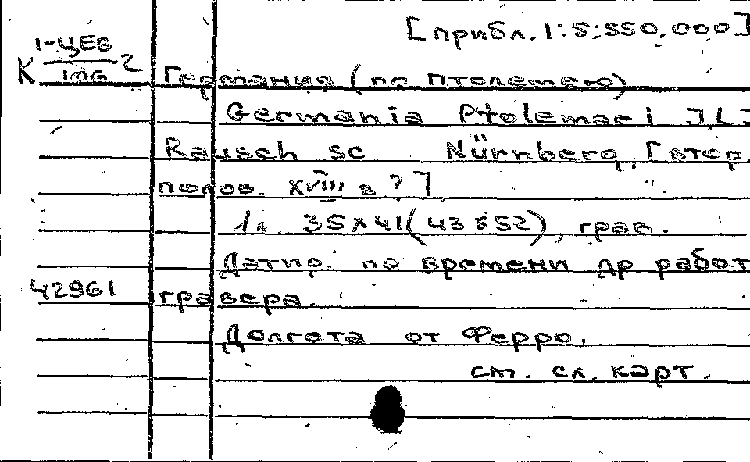 [прибл. 1:5.550.000]
К 1-ЦЕВ/106 2
Германия (по Птолемею)
Germania Ptolemaei J.L.
Rausch sc Nürnberg, [втор.
полов. XVIII в?]
1л. 35x41(43x52), грав.
Датир. по времени др работ
42961 гравера.
Долгота от Ферро.
см. сл. карт.